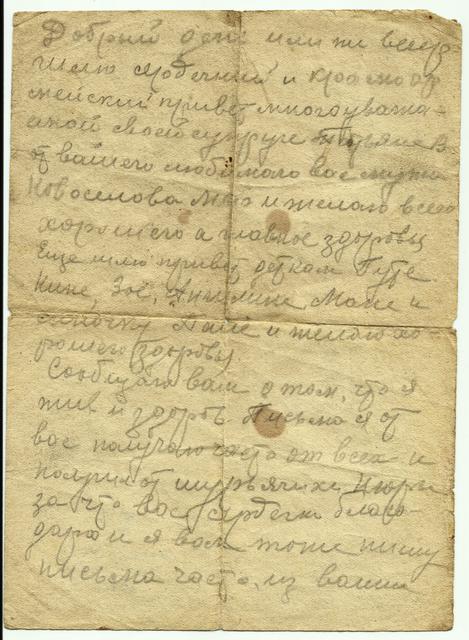 Добрый день или же вечер
Шлю любечий и красноар
мейский привет многоуважа-
емой своей супруге Татьяне В.
от вашего любимого вас мужа
Новоселова М. и желаю всего
хорошего а главное здоровья
Еще шлю привет деткам Гуте
Нине, Зое, Ангелине Мане и
сыночку Паше и желаю хо
рошего здоровья.
Сообщаю вам о том, что я
жив и здоров. Письма я от
вас получаю часто от всех и
получил от Нюры
за что вас сердечно благо-
дарю и я вам тоже пишу
письма часто, из ваших